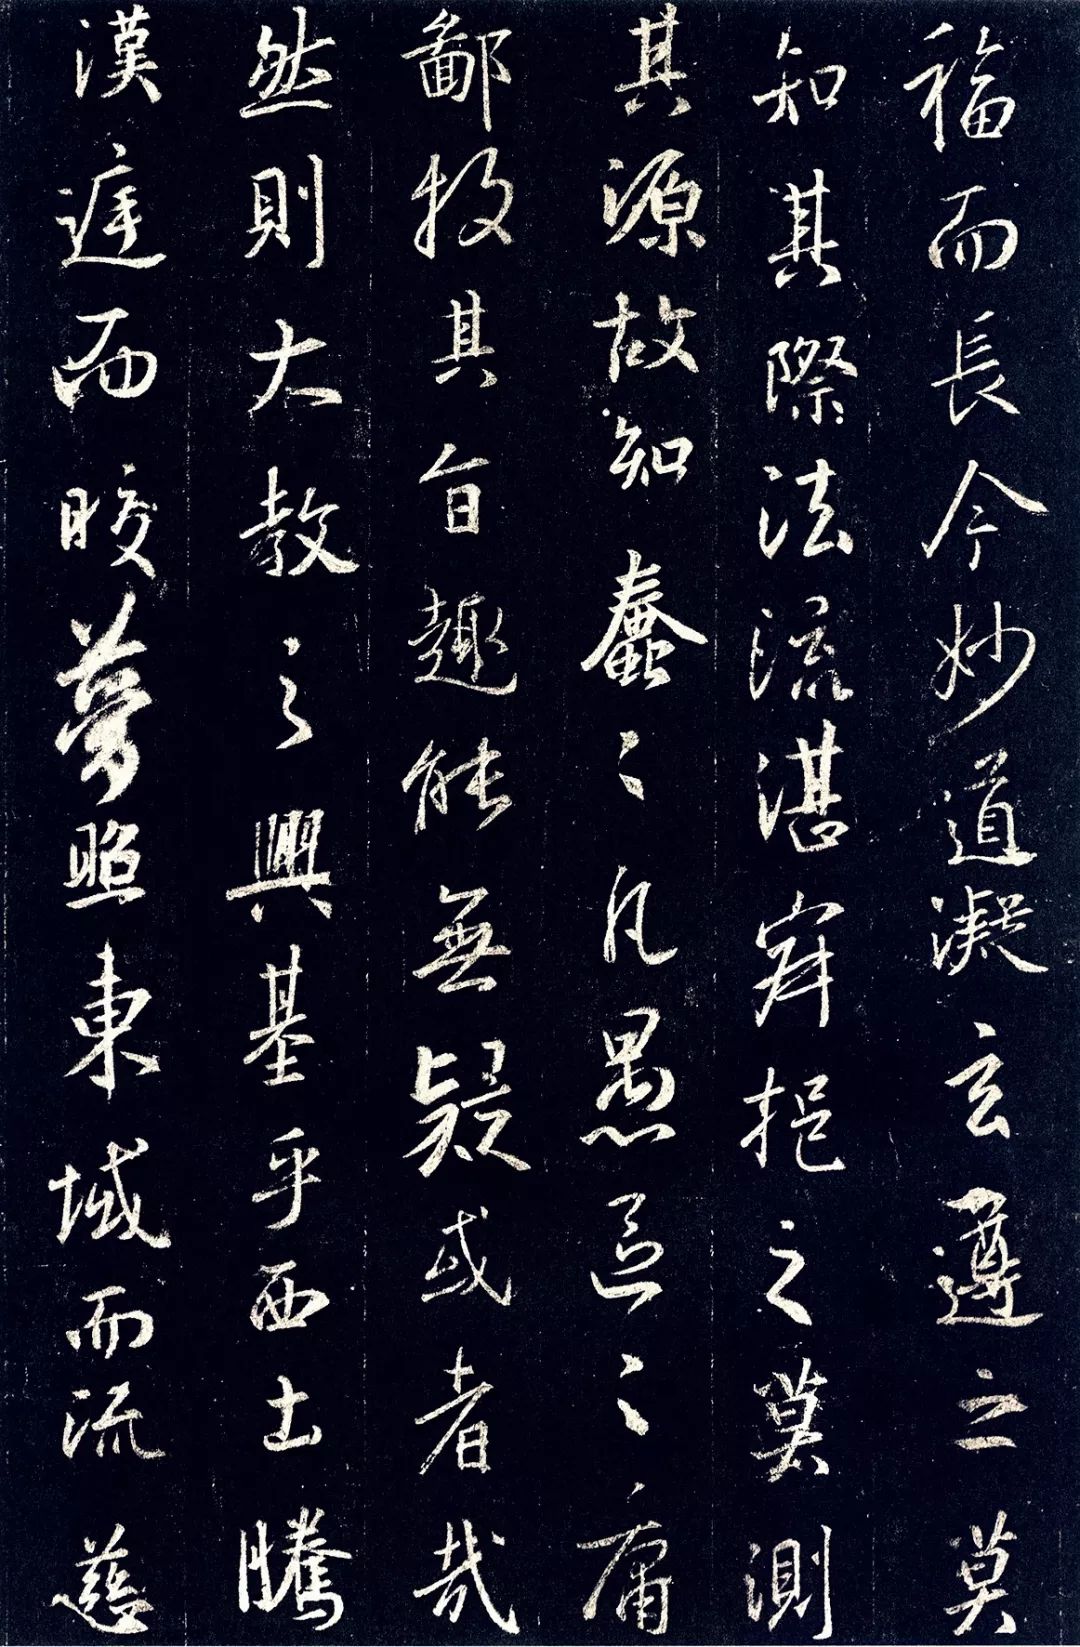 福而長今妙道凝玄遵之莫
知其際法流湛寂挹之莫測
其源故知蠢々凡愚區々庸
鄙投其旨趣能無疑或者哉
然則大教之興基乎西土騰
漢庭而皎夢照東域而流慈